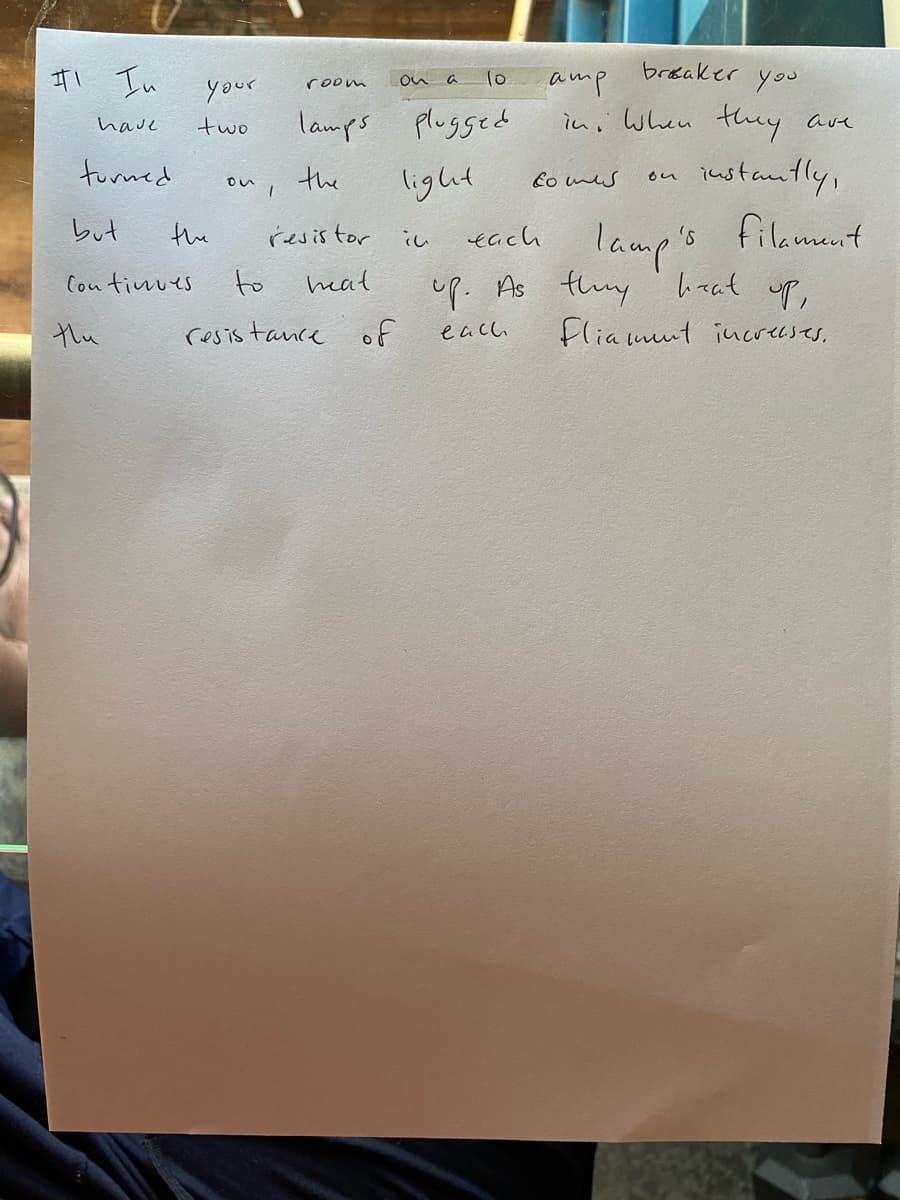 #1 In your room on a 10 amp breaker you
have two lamps plugged in. When they are
turned on, the light comes on instantly,
but the resistor in each lamp's filament
continues to heat up. As they heat up,
the resistance of each fliament increases.